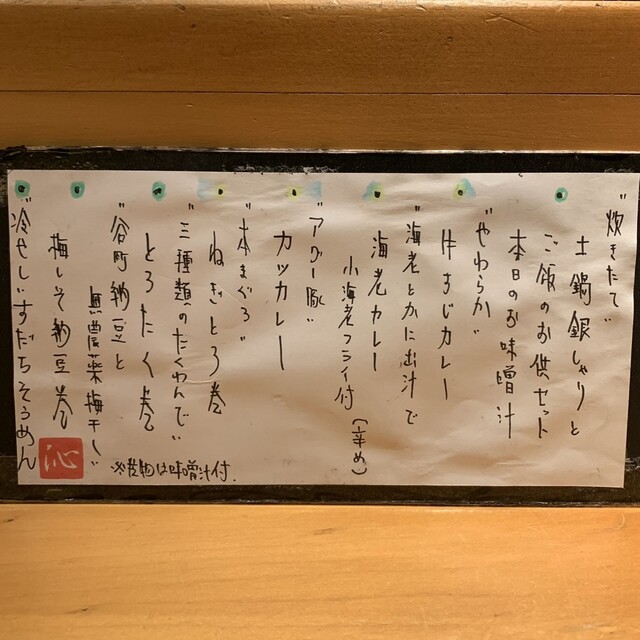 "炊きたて"
土鍋銀しゃりと
ご飯のお供セット
本日のお味噌汁
"やわらか"
牛すじカレー
"海老とかに出汁で
海老カレー
小海老フライ付(辛め)
"アグー豚"
カツカレー
"本まぐろ"
ねぎとろ巻
"三種類のたくわんで"
とろたく巻
"谷町納豆と
無農薬梅干し"
梅しそ納豆巻
"冷やしいすだちそうめん
※巻物は味噌汁付.
沁